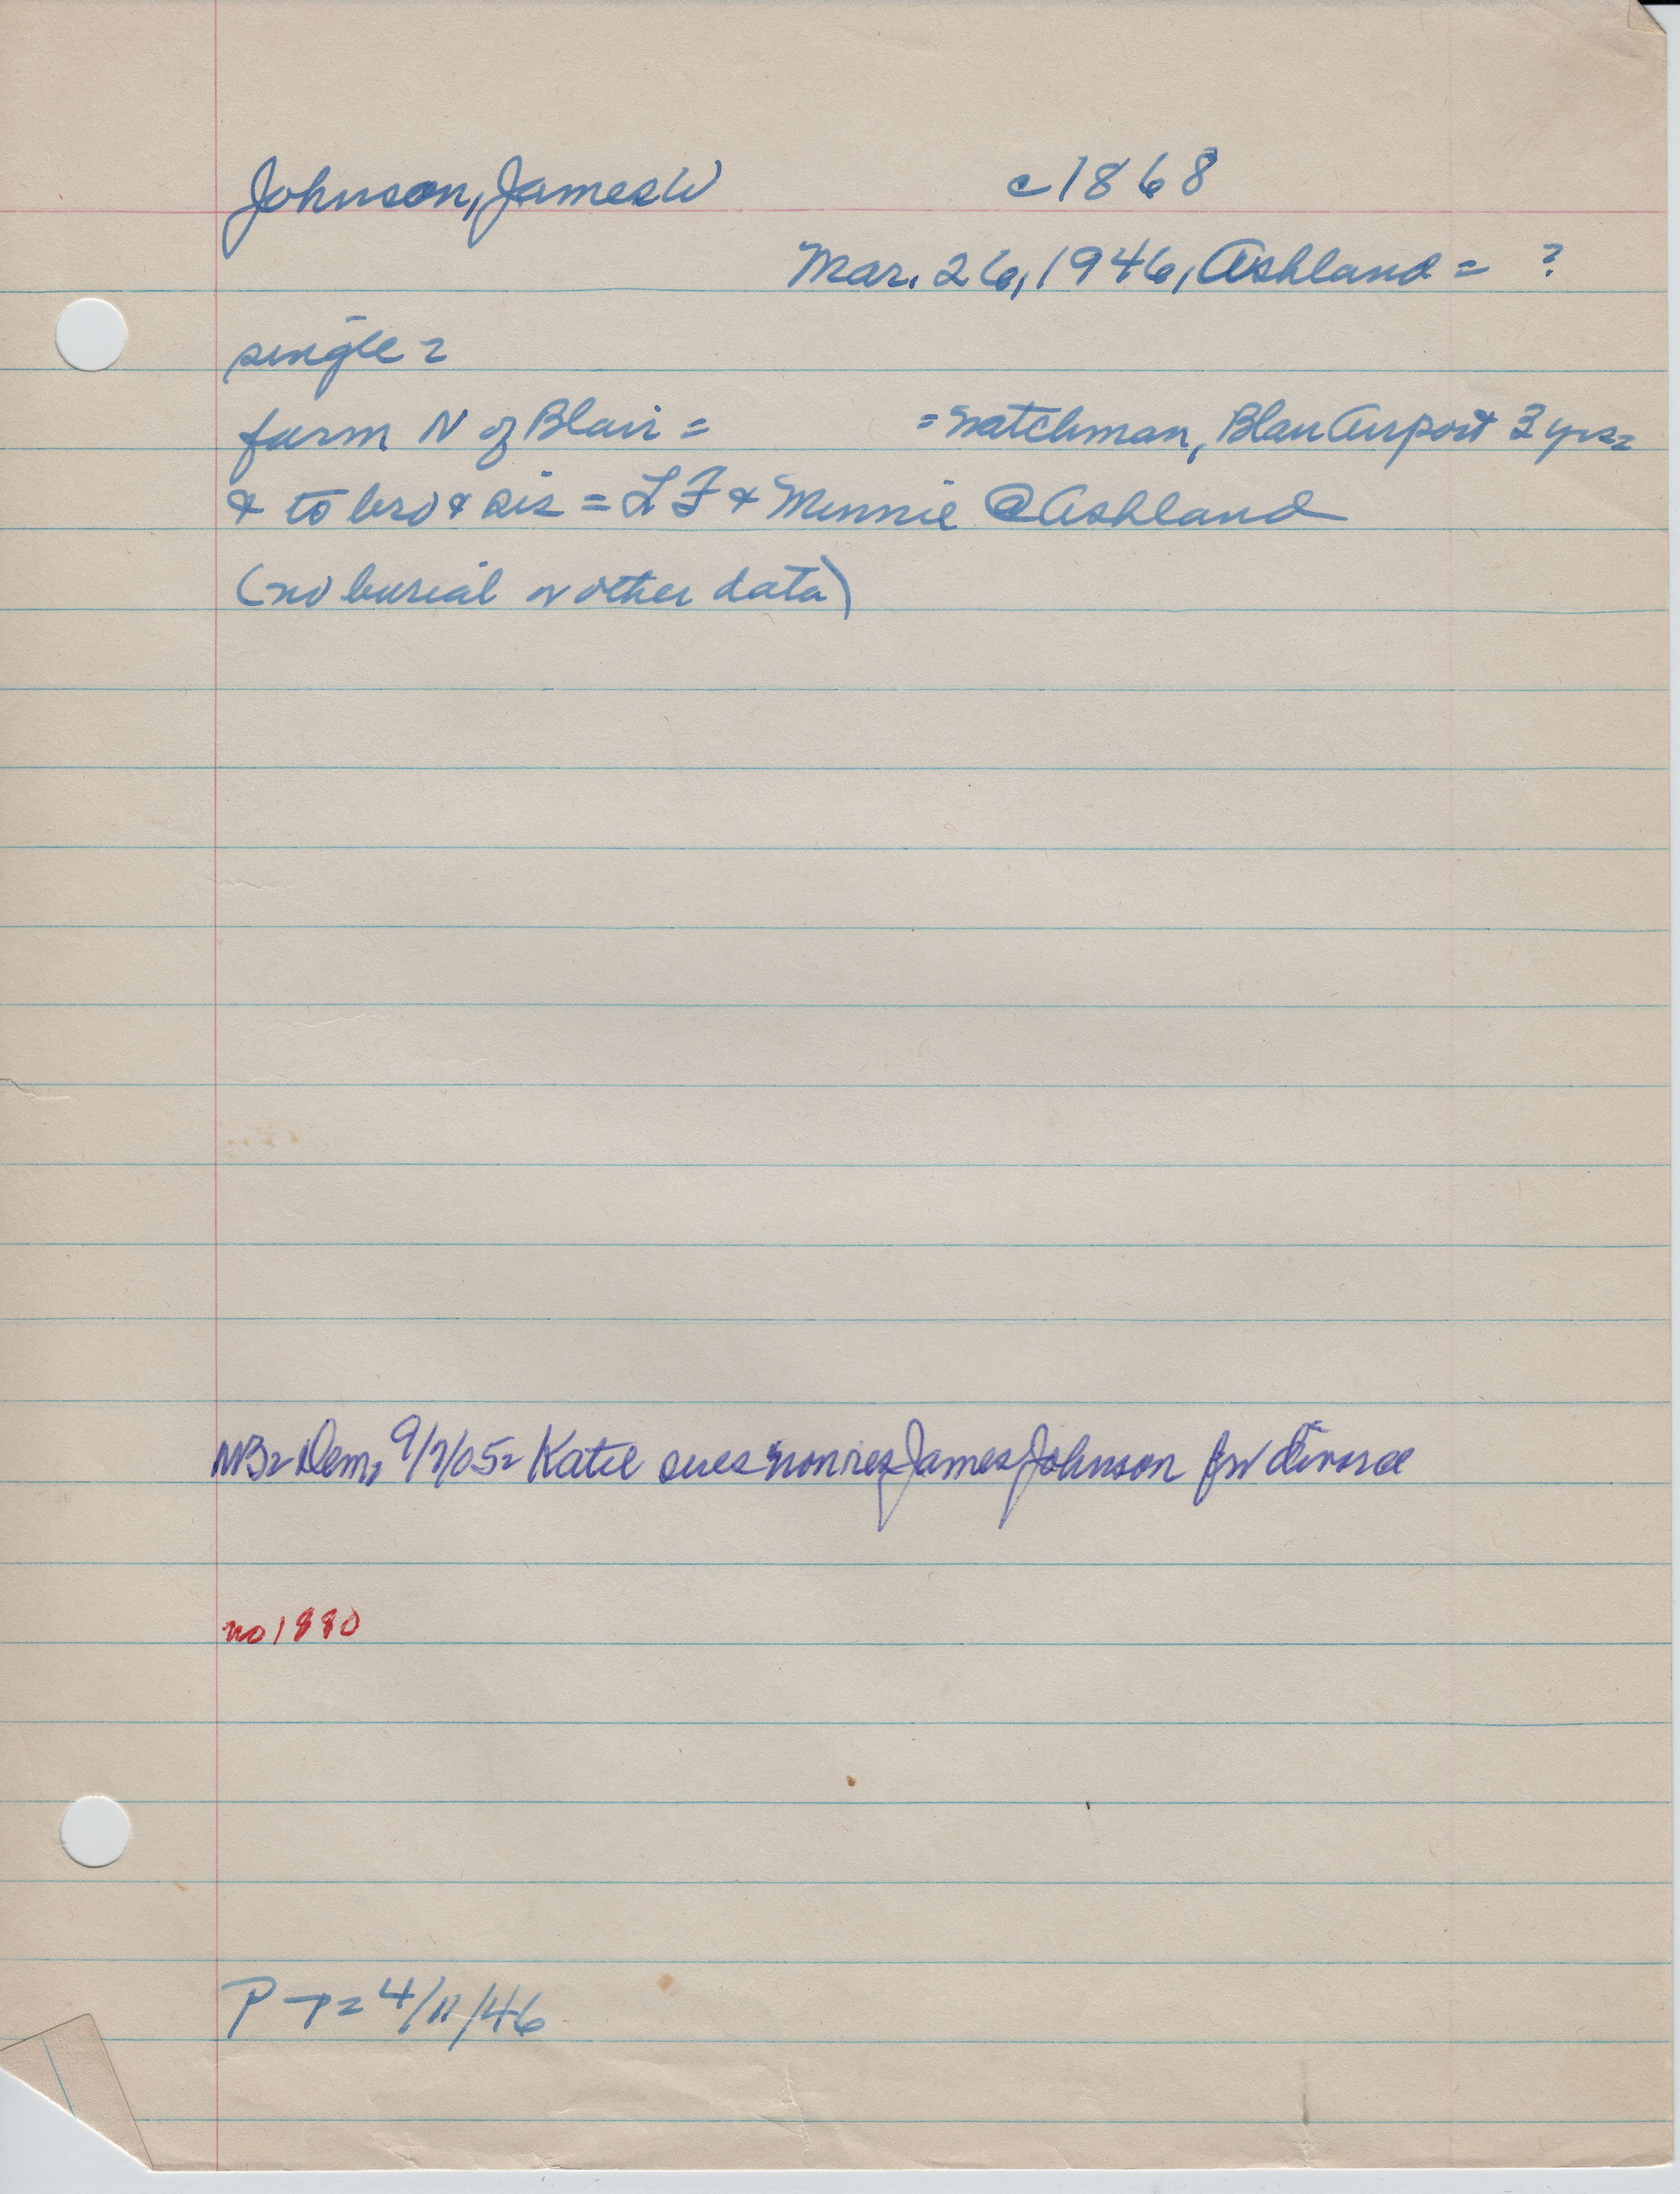 Johnson, James W c1868
Mar. 26, 1946, Ashland = ?
single =
farm N of Blair = = watchman, Blair Airport 3 yrs =
& to bro & sis = L F & Minnie @ Ashland
(no burial or other data)
NB = Dem, 9/7/05 = Katie sues nonres James Johnson for divorce
no 1880
P → = 4/11/46